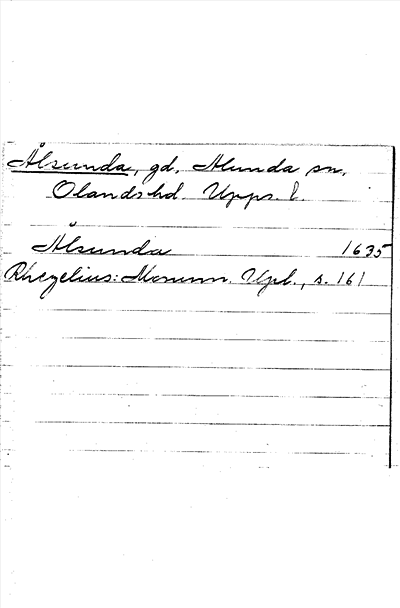 Ålsunda, gd, Alunda sn,
Olands hd. Upps. l.
Ålsunda 1635
Rhezelius: Monum. Upl., s. 161